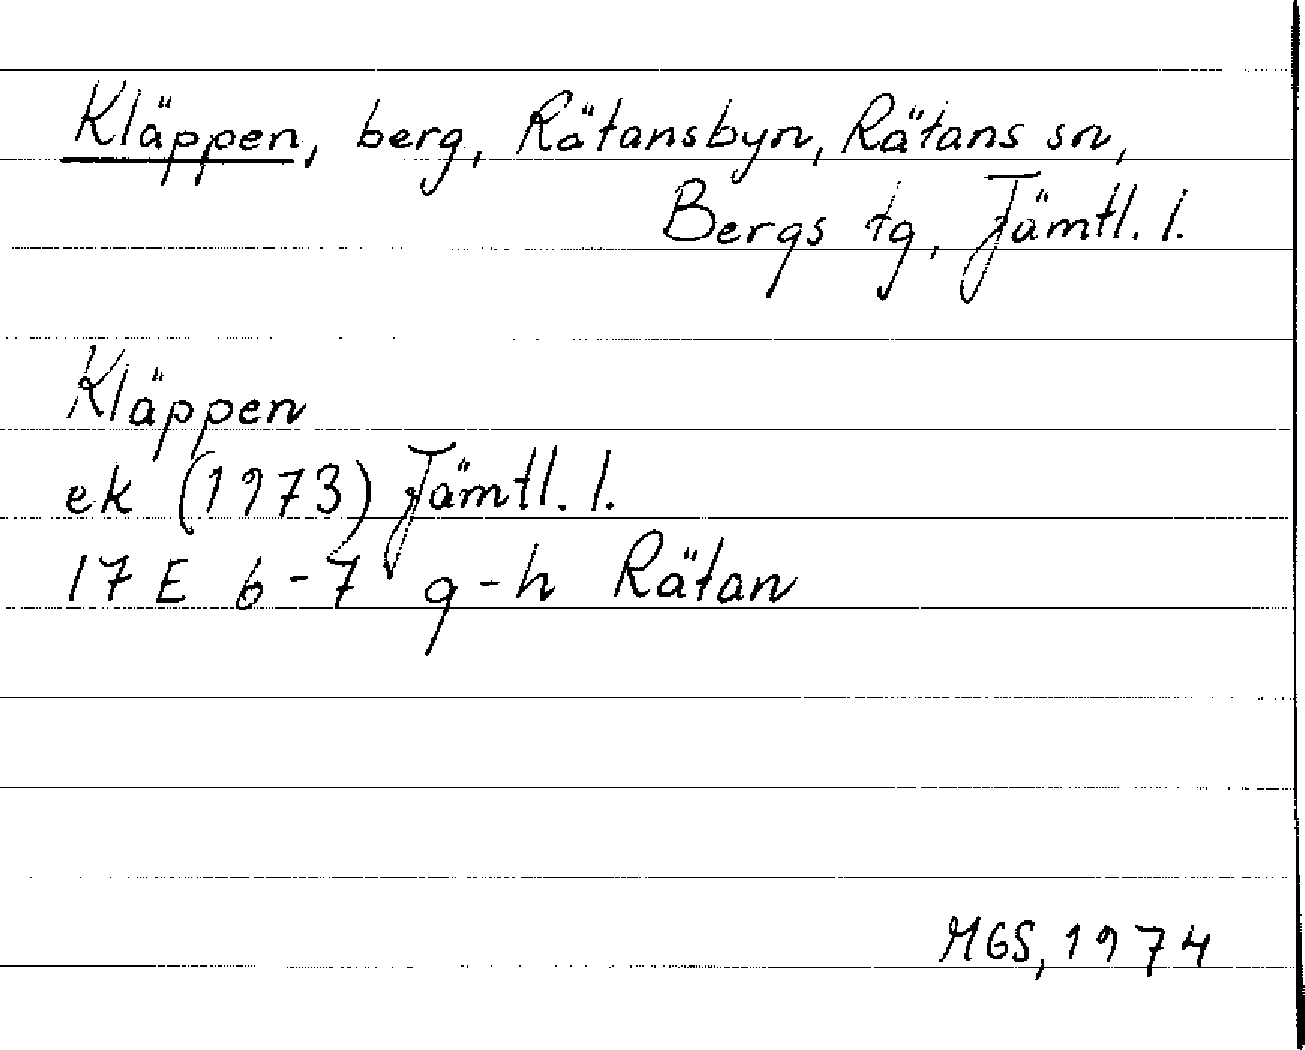 Kläppen, berg, Rätansbyn, Rätans sn,
Bergs tg, Jämtl. l.
Kläppen
ek (1973) Jämtl. l.
17 E 6-7 g-h Rätan
MGS, 1974